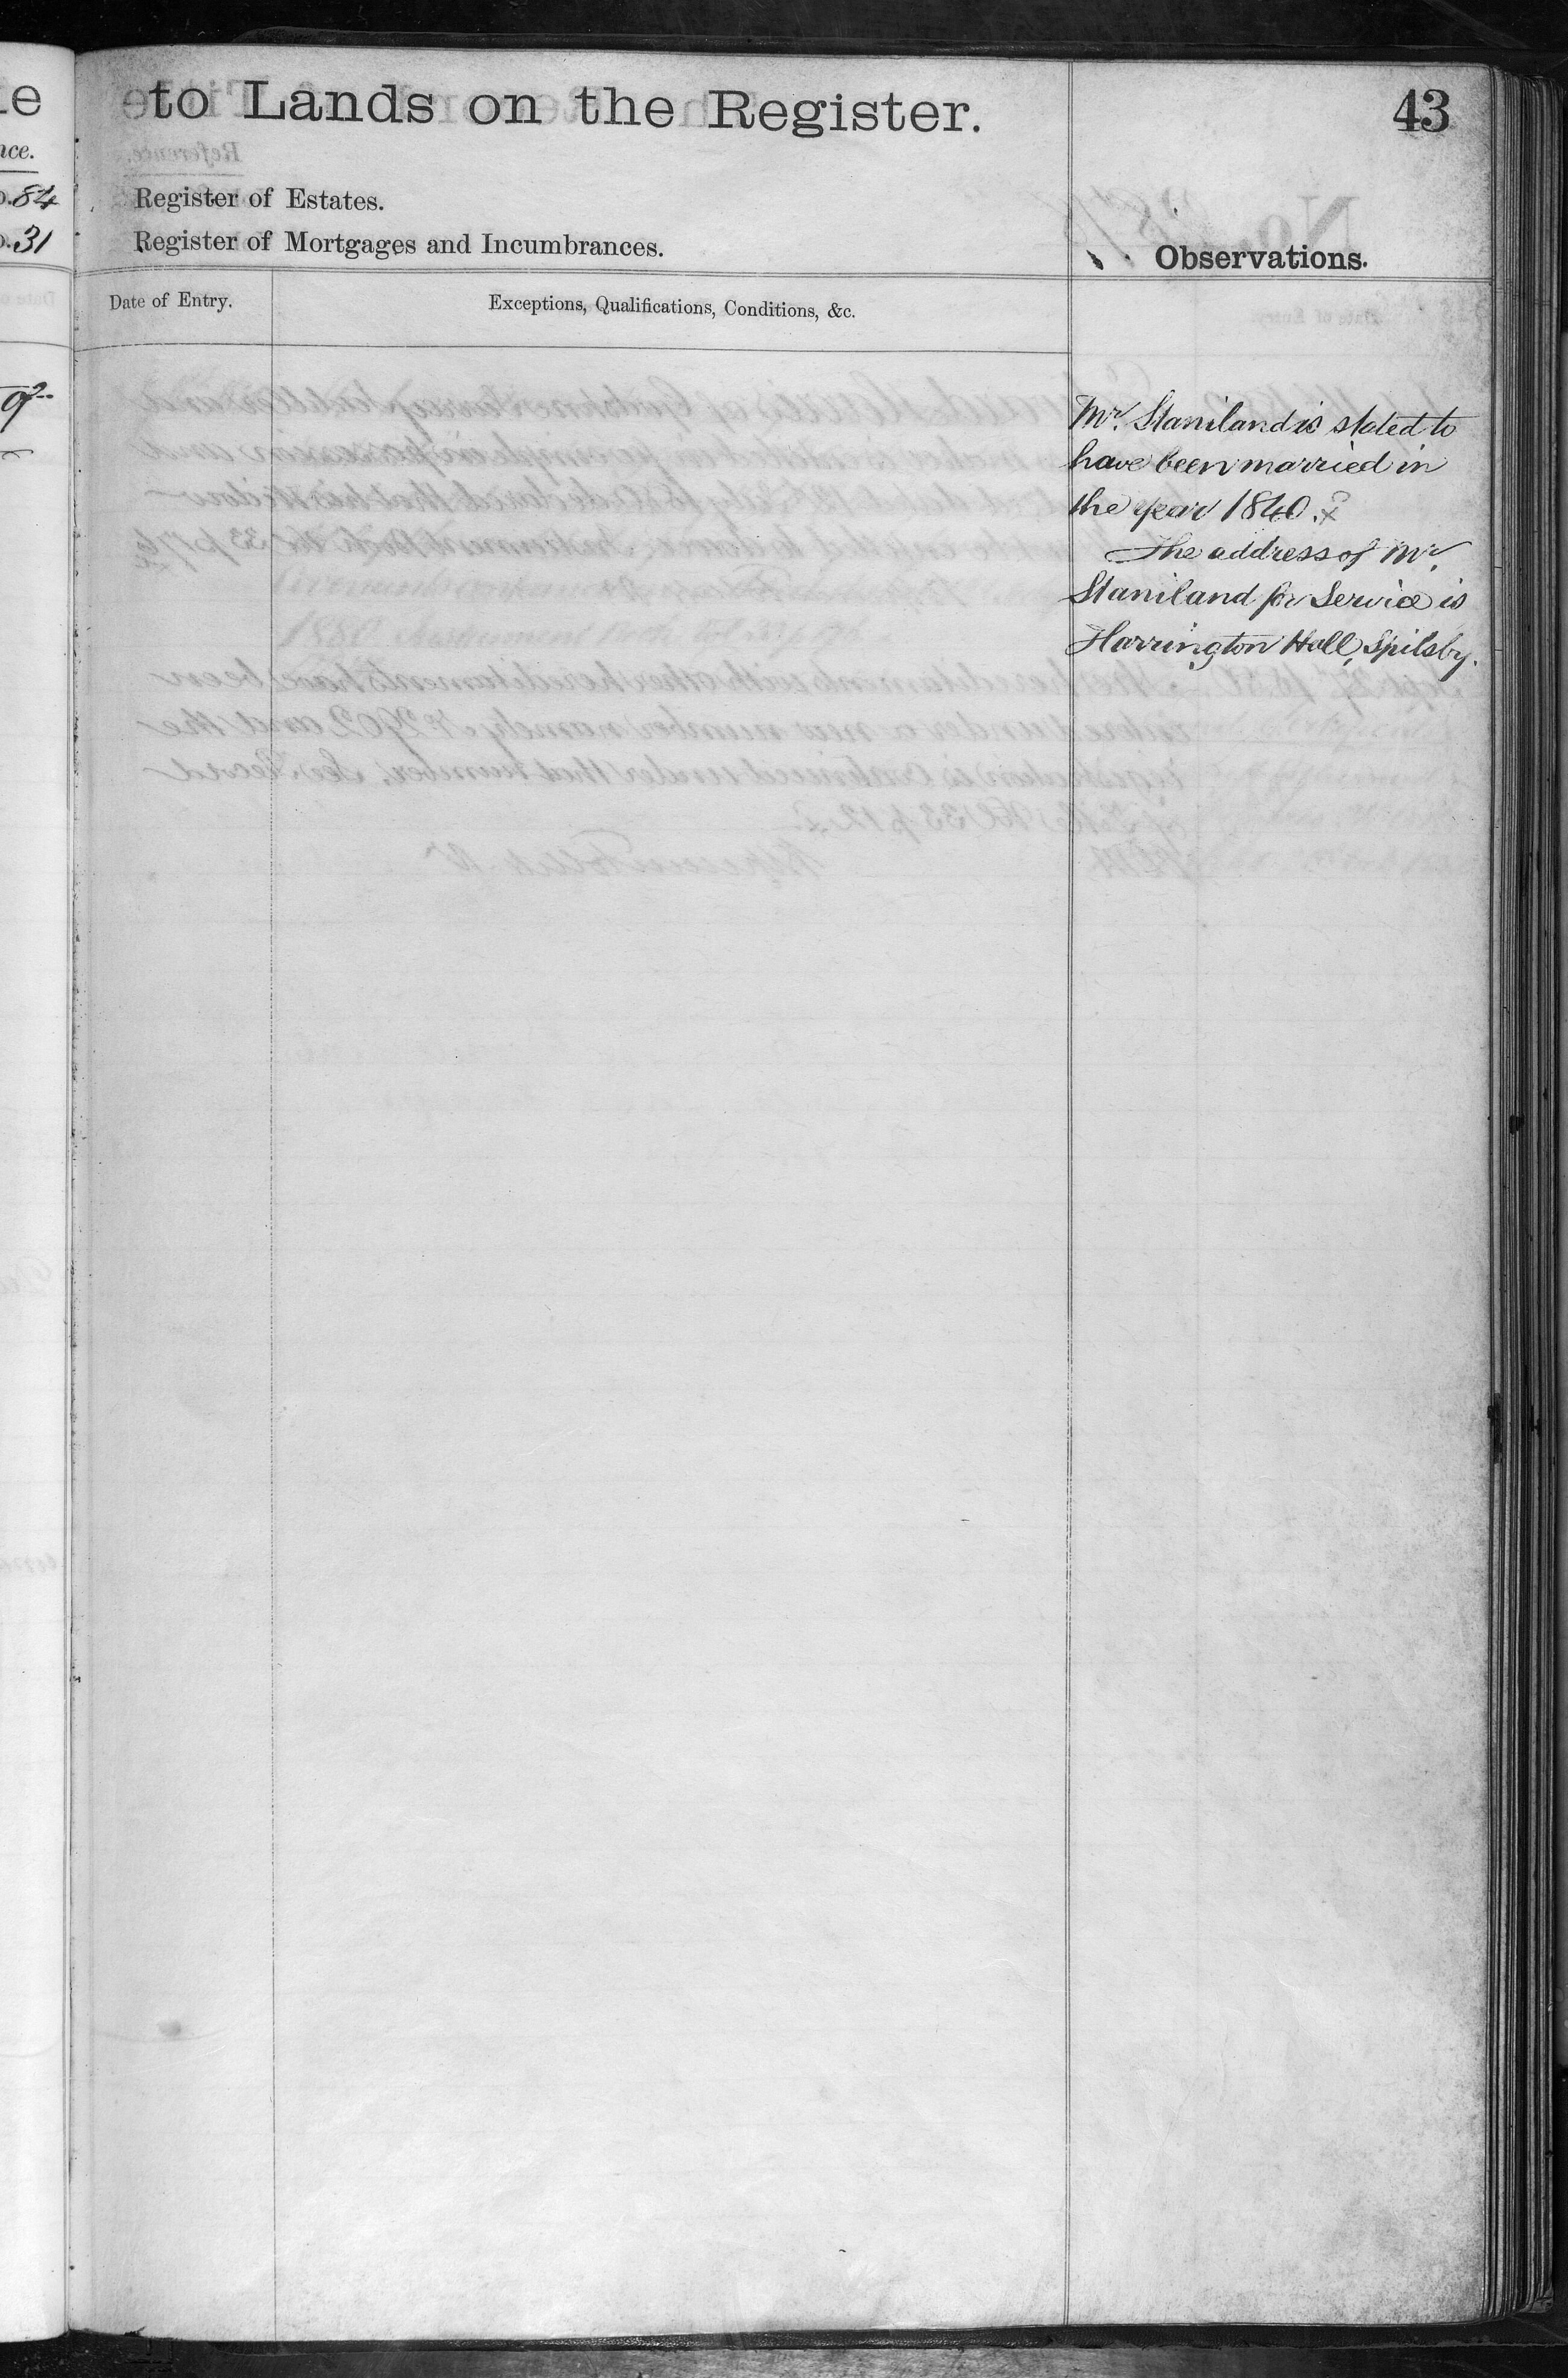 to Lands on the Register.
43
nce.
84
Register of Estates.
31
Register of Mortgages and Incumbrances.
Observations.
Date of Entry.
Exceptions, Qualifications, Conditions, &c.
Mr. Staniland is stated to
have been married in
the year 1840.
The address of Mr.
Staniland for Service is
Harrington Hall, Spilsby.